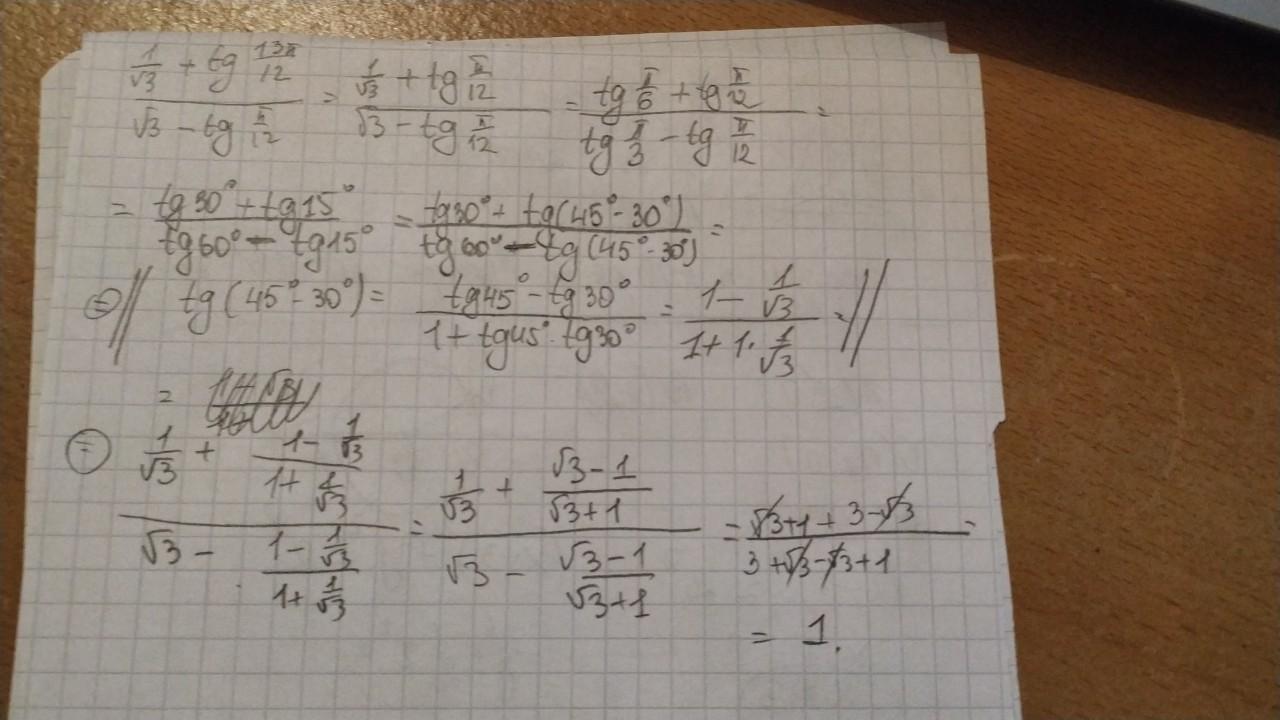 (1/√3 + tg 13π/12)/(√3 - tg π/12) = (1/√3 + tg π/12)/(√3 - tg π/12) = (tg π/6 + tg π/12)/(tg π/3 - tg π/12) =
= (tg30° + tg15°)/(tg60° - tg15°) = (tg30° + tg(45° - 30°))/(tg60° - tg(45° - 30°)) =
⊜ // tg(45° - 30°) = (tg45° - tg30°)/(1 + tg45° · tg30°) = (1 - 1/√3)/(1 + 1 · 1/√3) = //
=
⊜ (1/√3 + (1 - 1/√3)/(1 + 1/√3))/(√3 - (1 - 1/√3)/(1 + 1/√3)) = (1/√3 + (√3 - 1)/(√3 + 1))/(√3 - (√3 - 1)/(√3 + 1)) = (√3 + 1 + 3 - √3)/(3 + √3 - √3 + 1) =
= 1.